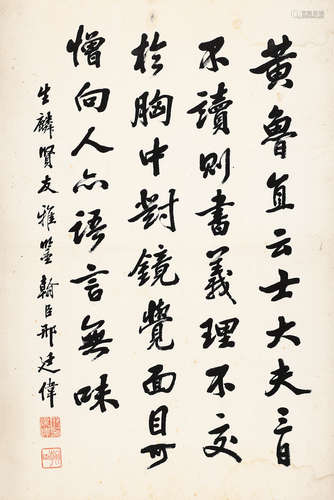 黃魯直云士大夫三日
不讀則書義理不交
於胸中對鏡覺面目可
憎向人亦語言無味
生麟賢友雅鑒 翰臣邢廷偉